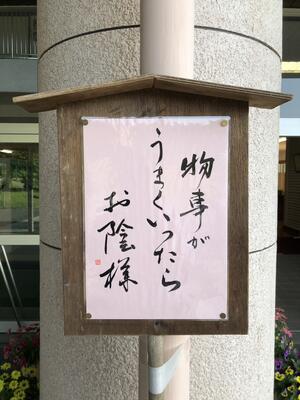 物事が
うまくいったら
お陰様